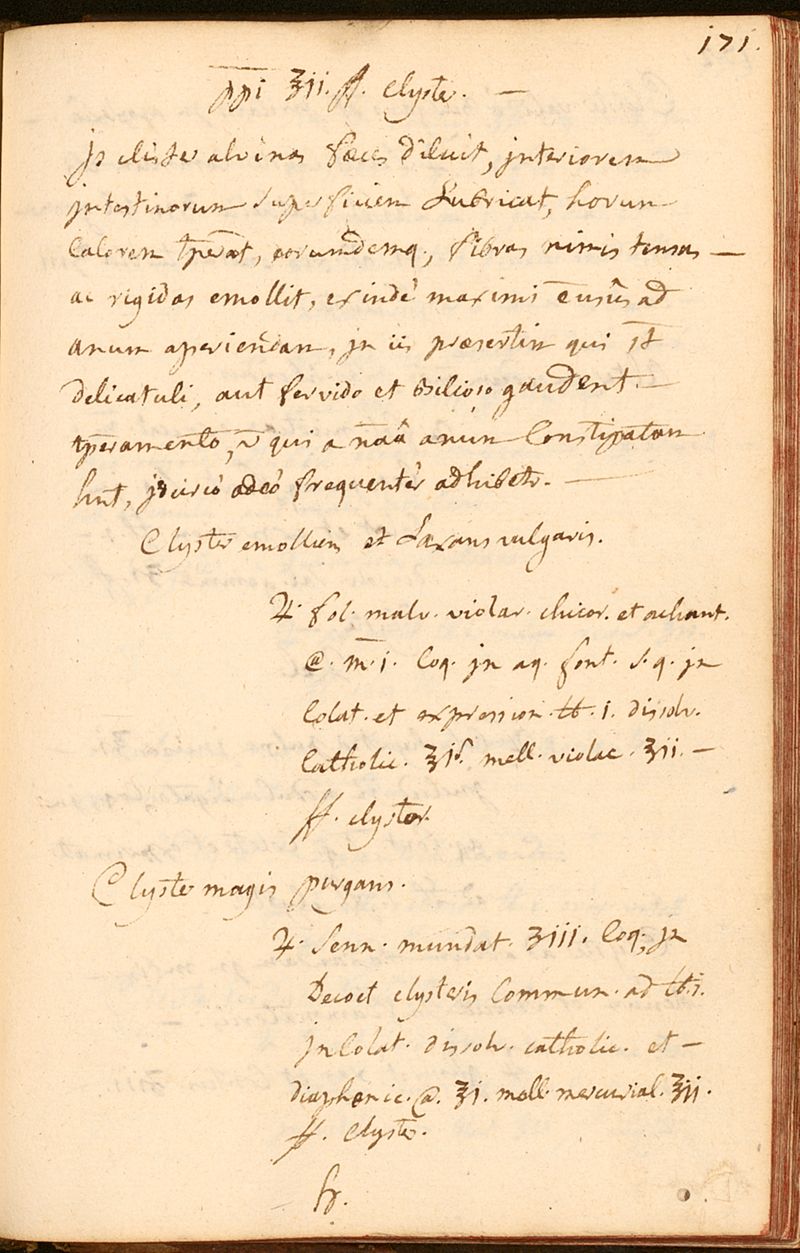 171.
ppi ʒii. ff. Clyster. —
js clister alvinas fæces diluit, jnteriorem
jntestinorum superficiem Lubricat, horum
Calorem tperat, eorumdemq., fibras nimis tensas —
ac rigidas emollit, exindè maximi ē usûs ad
anum aperiendam, jn iis præsertim qui st
delicatuli, aut fervido et bilioso gaudent —
tperamento, qui a naâ anum Constipatam
hnt, adeò frequentèr adhibetr. —
Clyster emolliens et Laxans vulgaris.
♃. fol. malv. violar. chicor. et achant.
@. m. i. Coq. jn aq. font. s. q. jn
Colat. et expression. ℔. i. dissolv.
Catholic. ʒiß. mell. violac. ʒii. —
ff. clyster.
Clyster magis purgans.
♃. Senn. mundat. ʒiii. Coq. jn
Decoct clysteris Commun. ad ℔.i.
jn Colat. dissolv. catholic. et —
diaphœnic. @. ʒi. mell. mercurial. ʒii.
ff. Clyster.